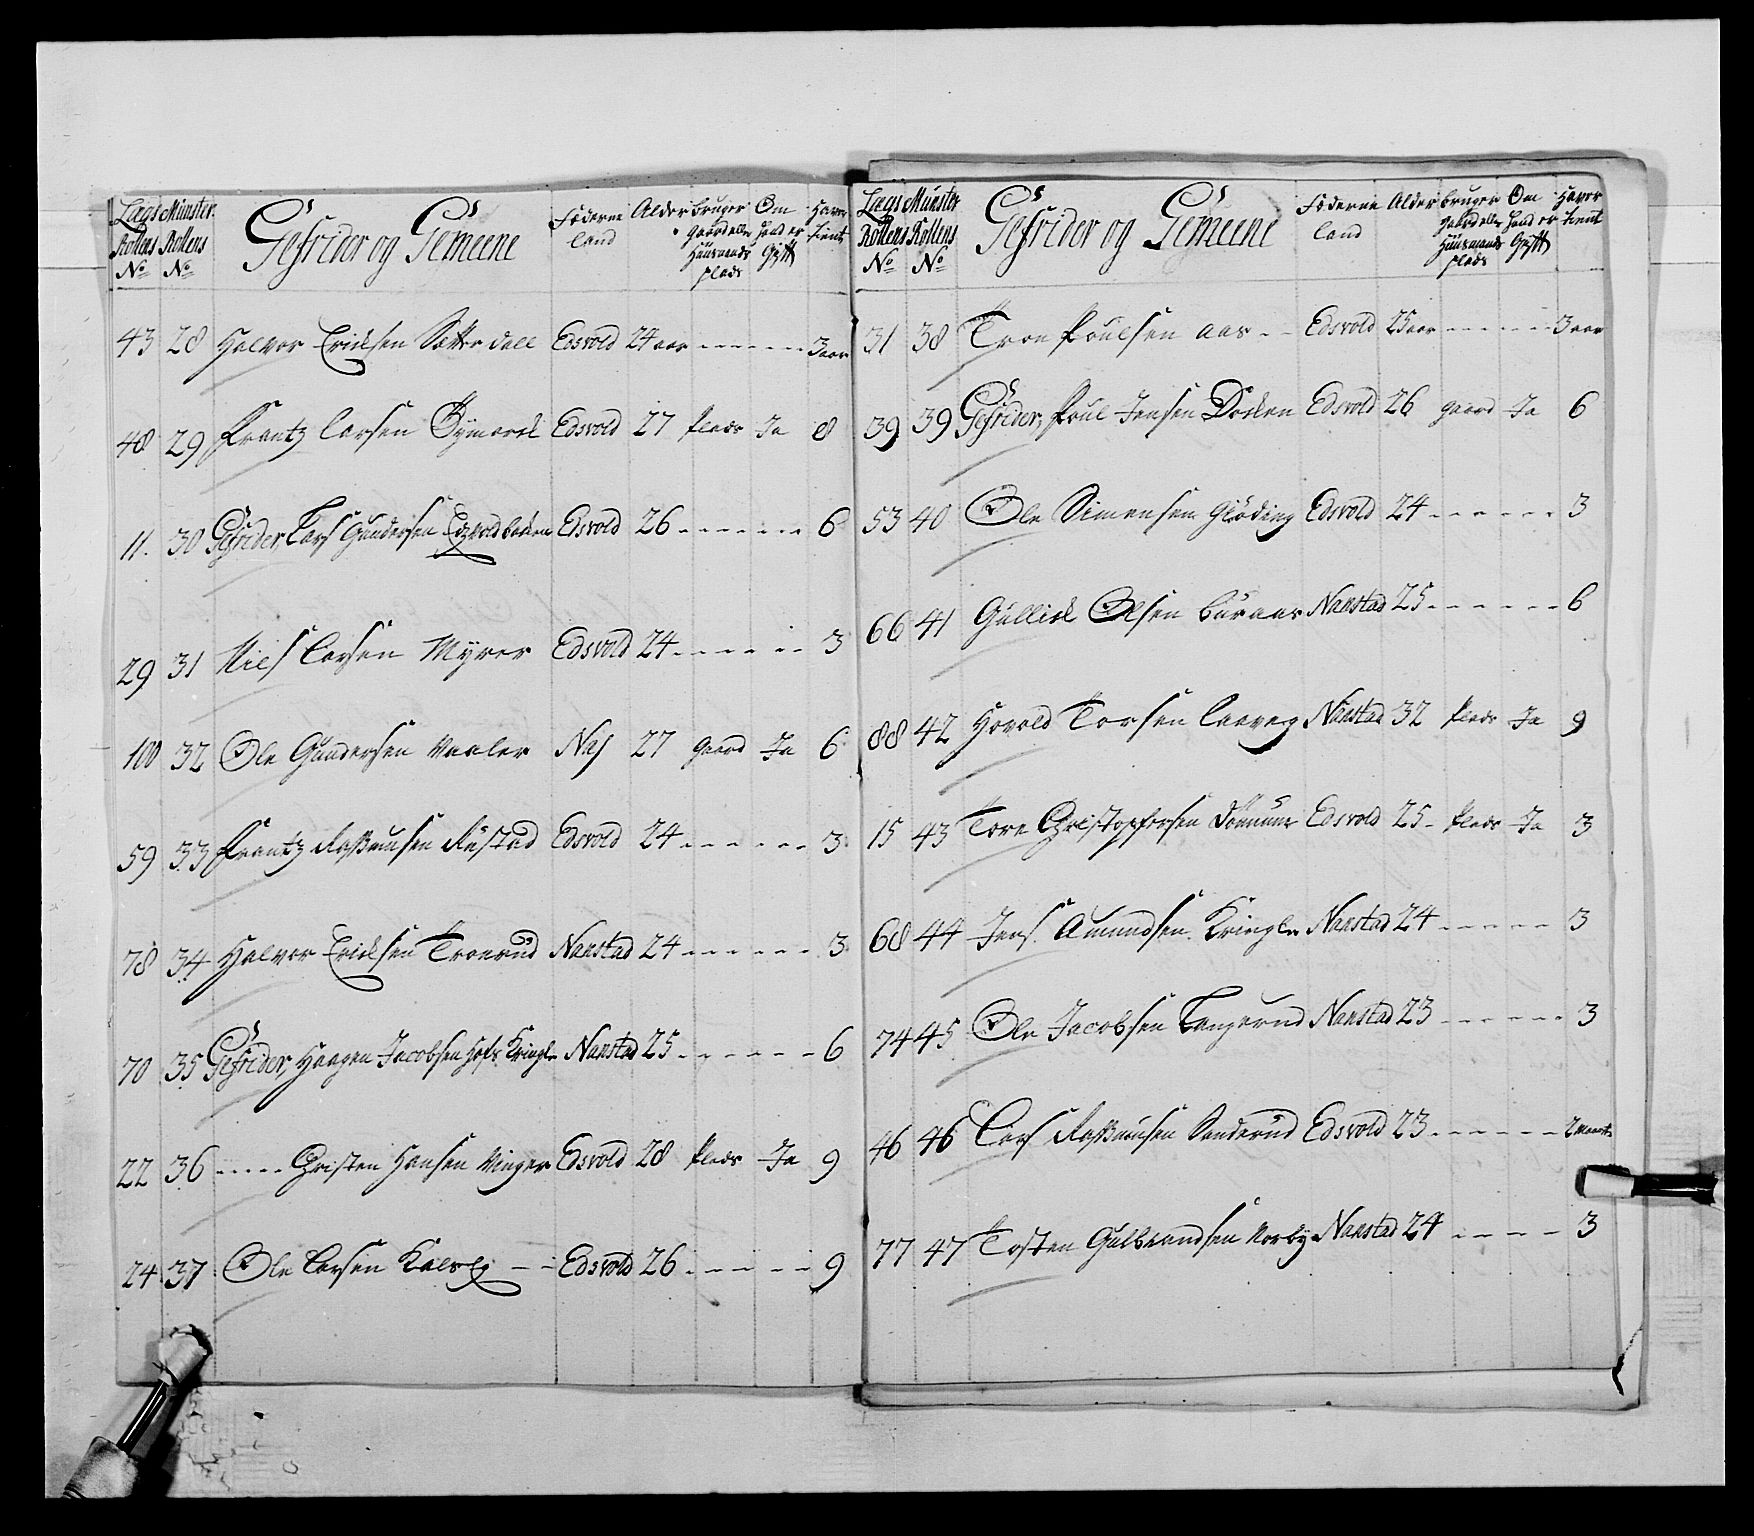 Lægs Rollens No | Münster Rollens No | Gefrider og Gemeene | Föderne land | Alder | bruger gaard eller Huusmands plads | Om hand er Gift | Haver tient
43 28 Halvor Ericksen Sætterdall Edsvold 24 aar ------ 3 aar
48 29 Frantz Larsen Edsvold 27 Plads Ja 8
11. 30 Gefrider, Lars Gundersen Edsvold 26 ------ 6
29 31 Nils Larsen Myrer Edsvold 24 ------ 3
100 32 Ole Gundersen Vaaler Næs 27 gaard Ja 6
59 33 Frantz Rasmusen Rustad Edsvold 24 ------ 3
78 34 Halvor Ericksen Tronrud Nanstad 24 ------ 3
70 35 Gefrider, Haagen Jacobsen Hofs Kringle Nanstad 25 ------ 6
22 36 ----- Christen Hansen Vinger Edsvold 28 Plads Ja 9
24 37 Ole Larsen Edsvold 26 ------ 9
Lægs Rollens No | Münster Rollens No | Gefrider og Gemeene | Föderne land | Alder | bruger gaard eller Huusmands plads | Om hand er Gift | Haver tient
31 38 Tron Poulsen Aas -- Edsvold 25 aar ------ 3 aar
39 39 Gefrider, Poul Jensen Docken Edsvold 26 gaard Ja 6
53 40 Ole Simensen Edsvold 24 ------ 3
66 41 Gullick Olsen Buraas Nanstad 25 ------ 6
88 42 Hovold Torsen Nanstad 32 Plads Ja 9
15 43 Tore Christophersen Edsvold 25 - Plads Ja 3
68 44 Jens Amundsen Kringle Nanstad 24 ----- 3
74 45 Ole Jacobsen Tangerud Nanstad 23 ------ 3
46 46 Lars Rasmusen Sanderud Edsvold 23 ------ 2
77 47 Tosten Gulbrandsen Norby Nanstad 24 ----- 3